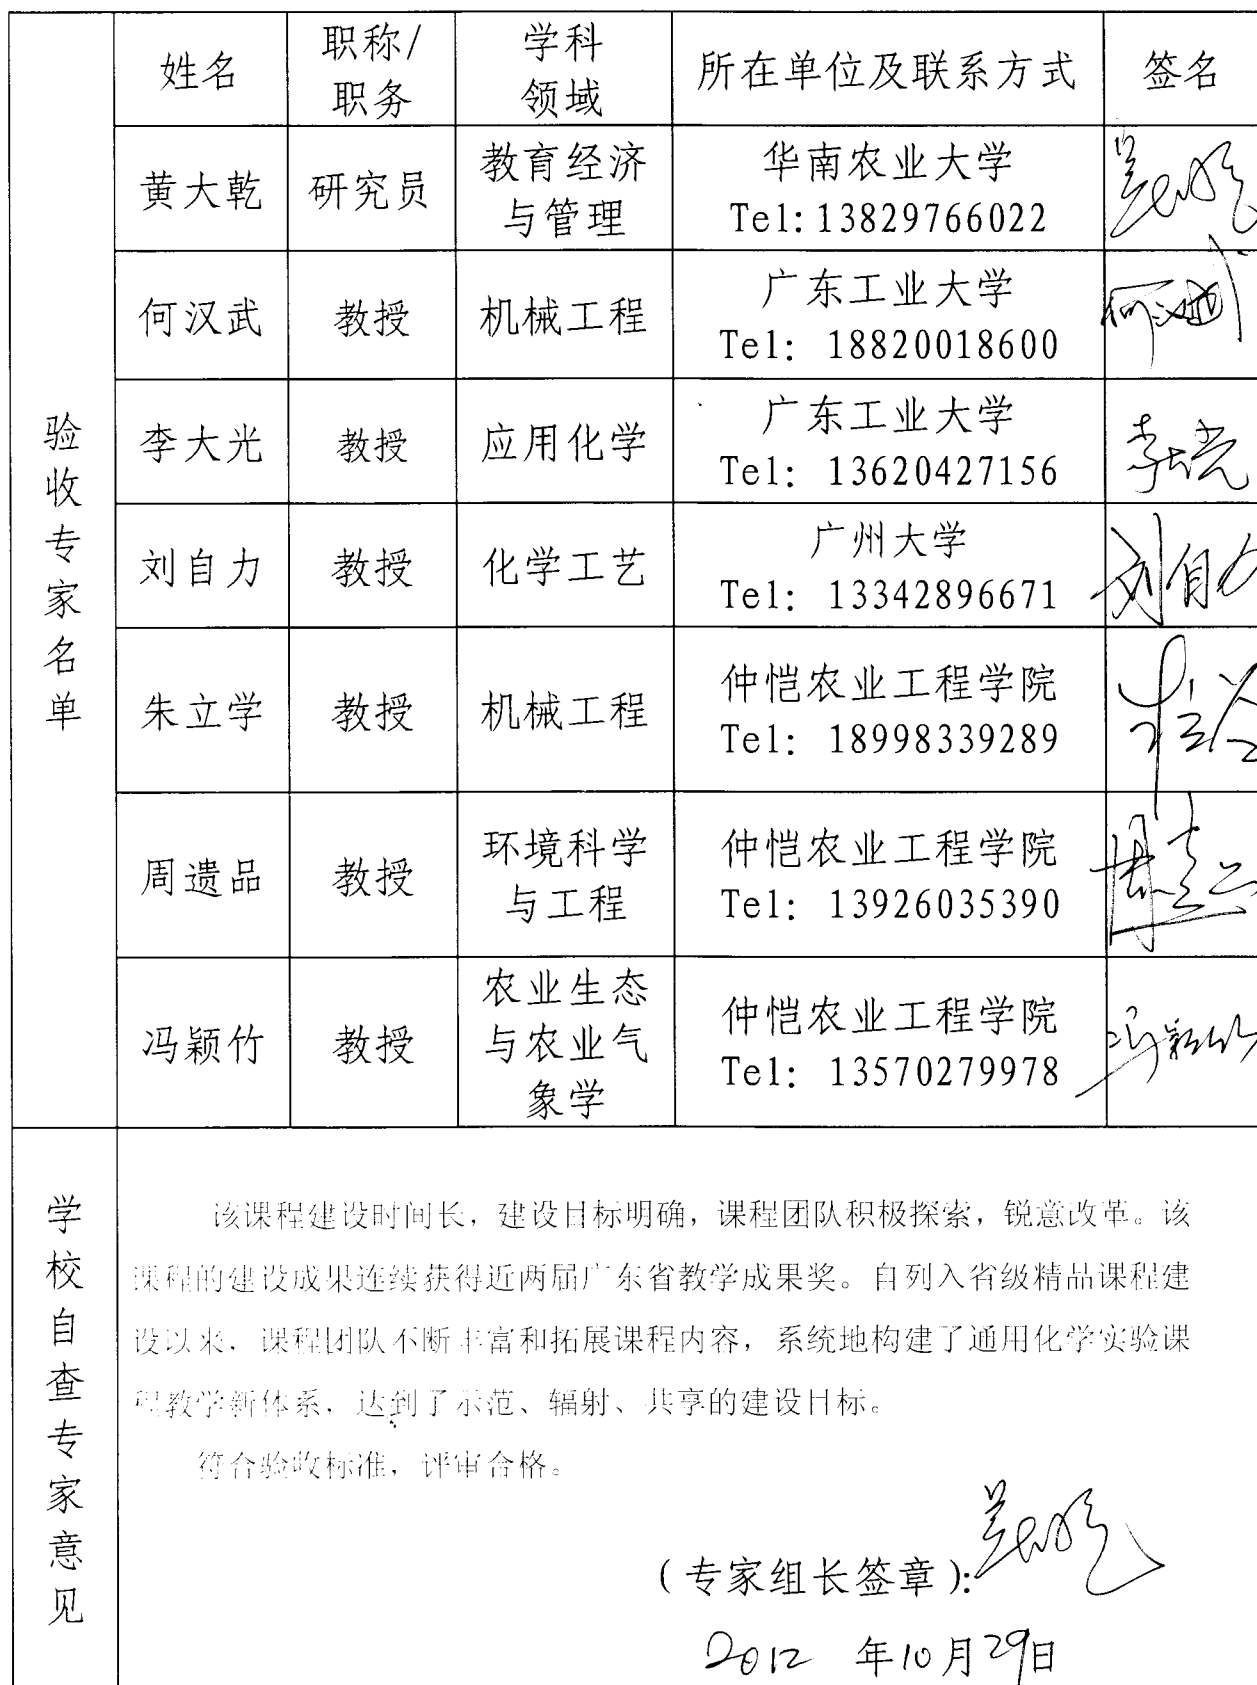 验收专家名单
姓名
职称/
职务
学科
领域
所在单位及联系方式
签名
黄大乾
研究员
教育经济
与管理
华南农业大学
Tel:13829766022
何汉武
教授
机械工程
广东工业大学
Tel: 18820018600
何汉武
李大光
教授
应用化学
广东工业大学
Tel: 13620427156
李大光
刘自力
教授
化学工艺
广州大学
Tel: 13342896671
刘自力
朱立学
教授
机械工程
仲恺农业工程学院
Tel: 18998339289
朱立学
周遗品
教授
环境科学
与工程
仲恺农业工程学院
Tel: 13926035390
周遗品
冯颖竹
教授
农业生态
与农业气
象学
仲恺农业工程学院
Tel: 13570279978
冯颖竹
学校自查专家意见
该课程建设时间长，建设目标明确，课程团队积极探索，锐意改革。该
课程的建设成果连续获得近两届广东省教学成果奖。自列入省级精品课程建
设以来，课程团队不断丰富和拓展课程内容，系统地构建了通用化学实验课
程教学新体系，达到了示范、辐射、共享的建设目标。
符合验收标准，评审合格。
（专家组长签章）：
2012 年10月29日